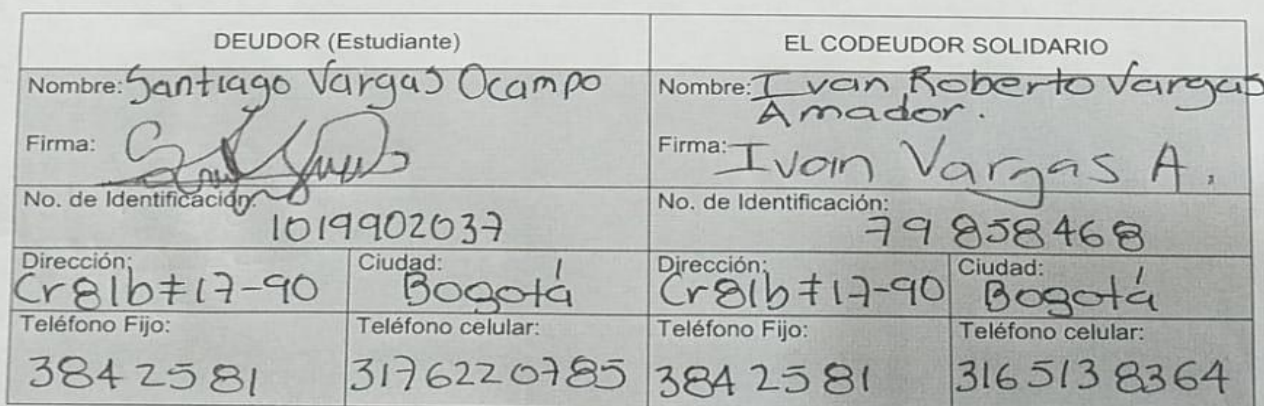 DEUDOR (Estudiante)
EL CODEUDOR SOLIDARIO
Nombre: Santiago Vargas Ocampo
Nombre: Ivan Roberto Vargas
Amador.
Firma:
Firma: Ivan Vargas A.
No. de Identificación:
1019902037
No. de Identificación:
79 858468
Dirección:
Cr81b#17-90
Ciudad:
Bogotá
Dirección:
Cr81b#17-90
Ciudad:
Bogotá
Teléfono Fijo:
384 25 81
Teléfono celular:
3176220785
Teléfono Fijo:
384 25 81
Teléfono celular:
316 513 8364